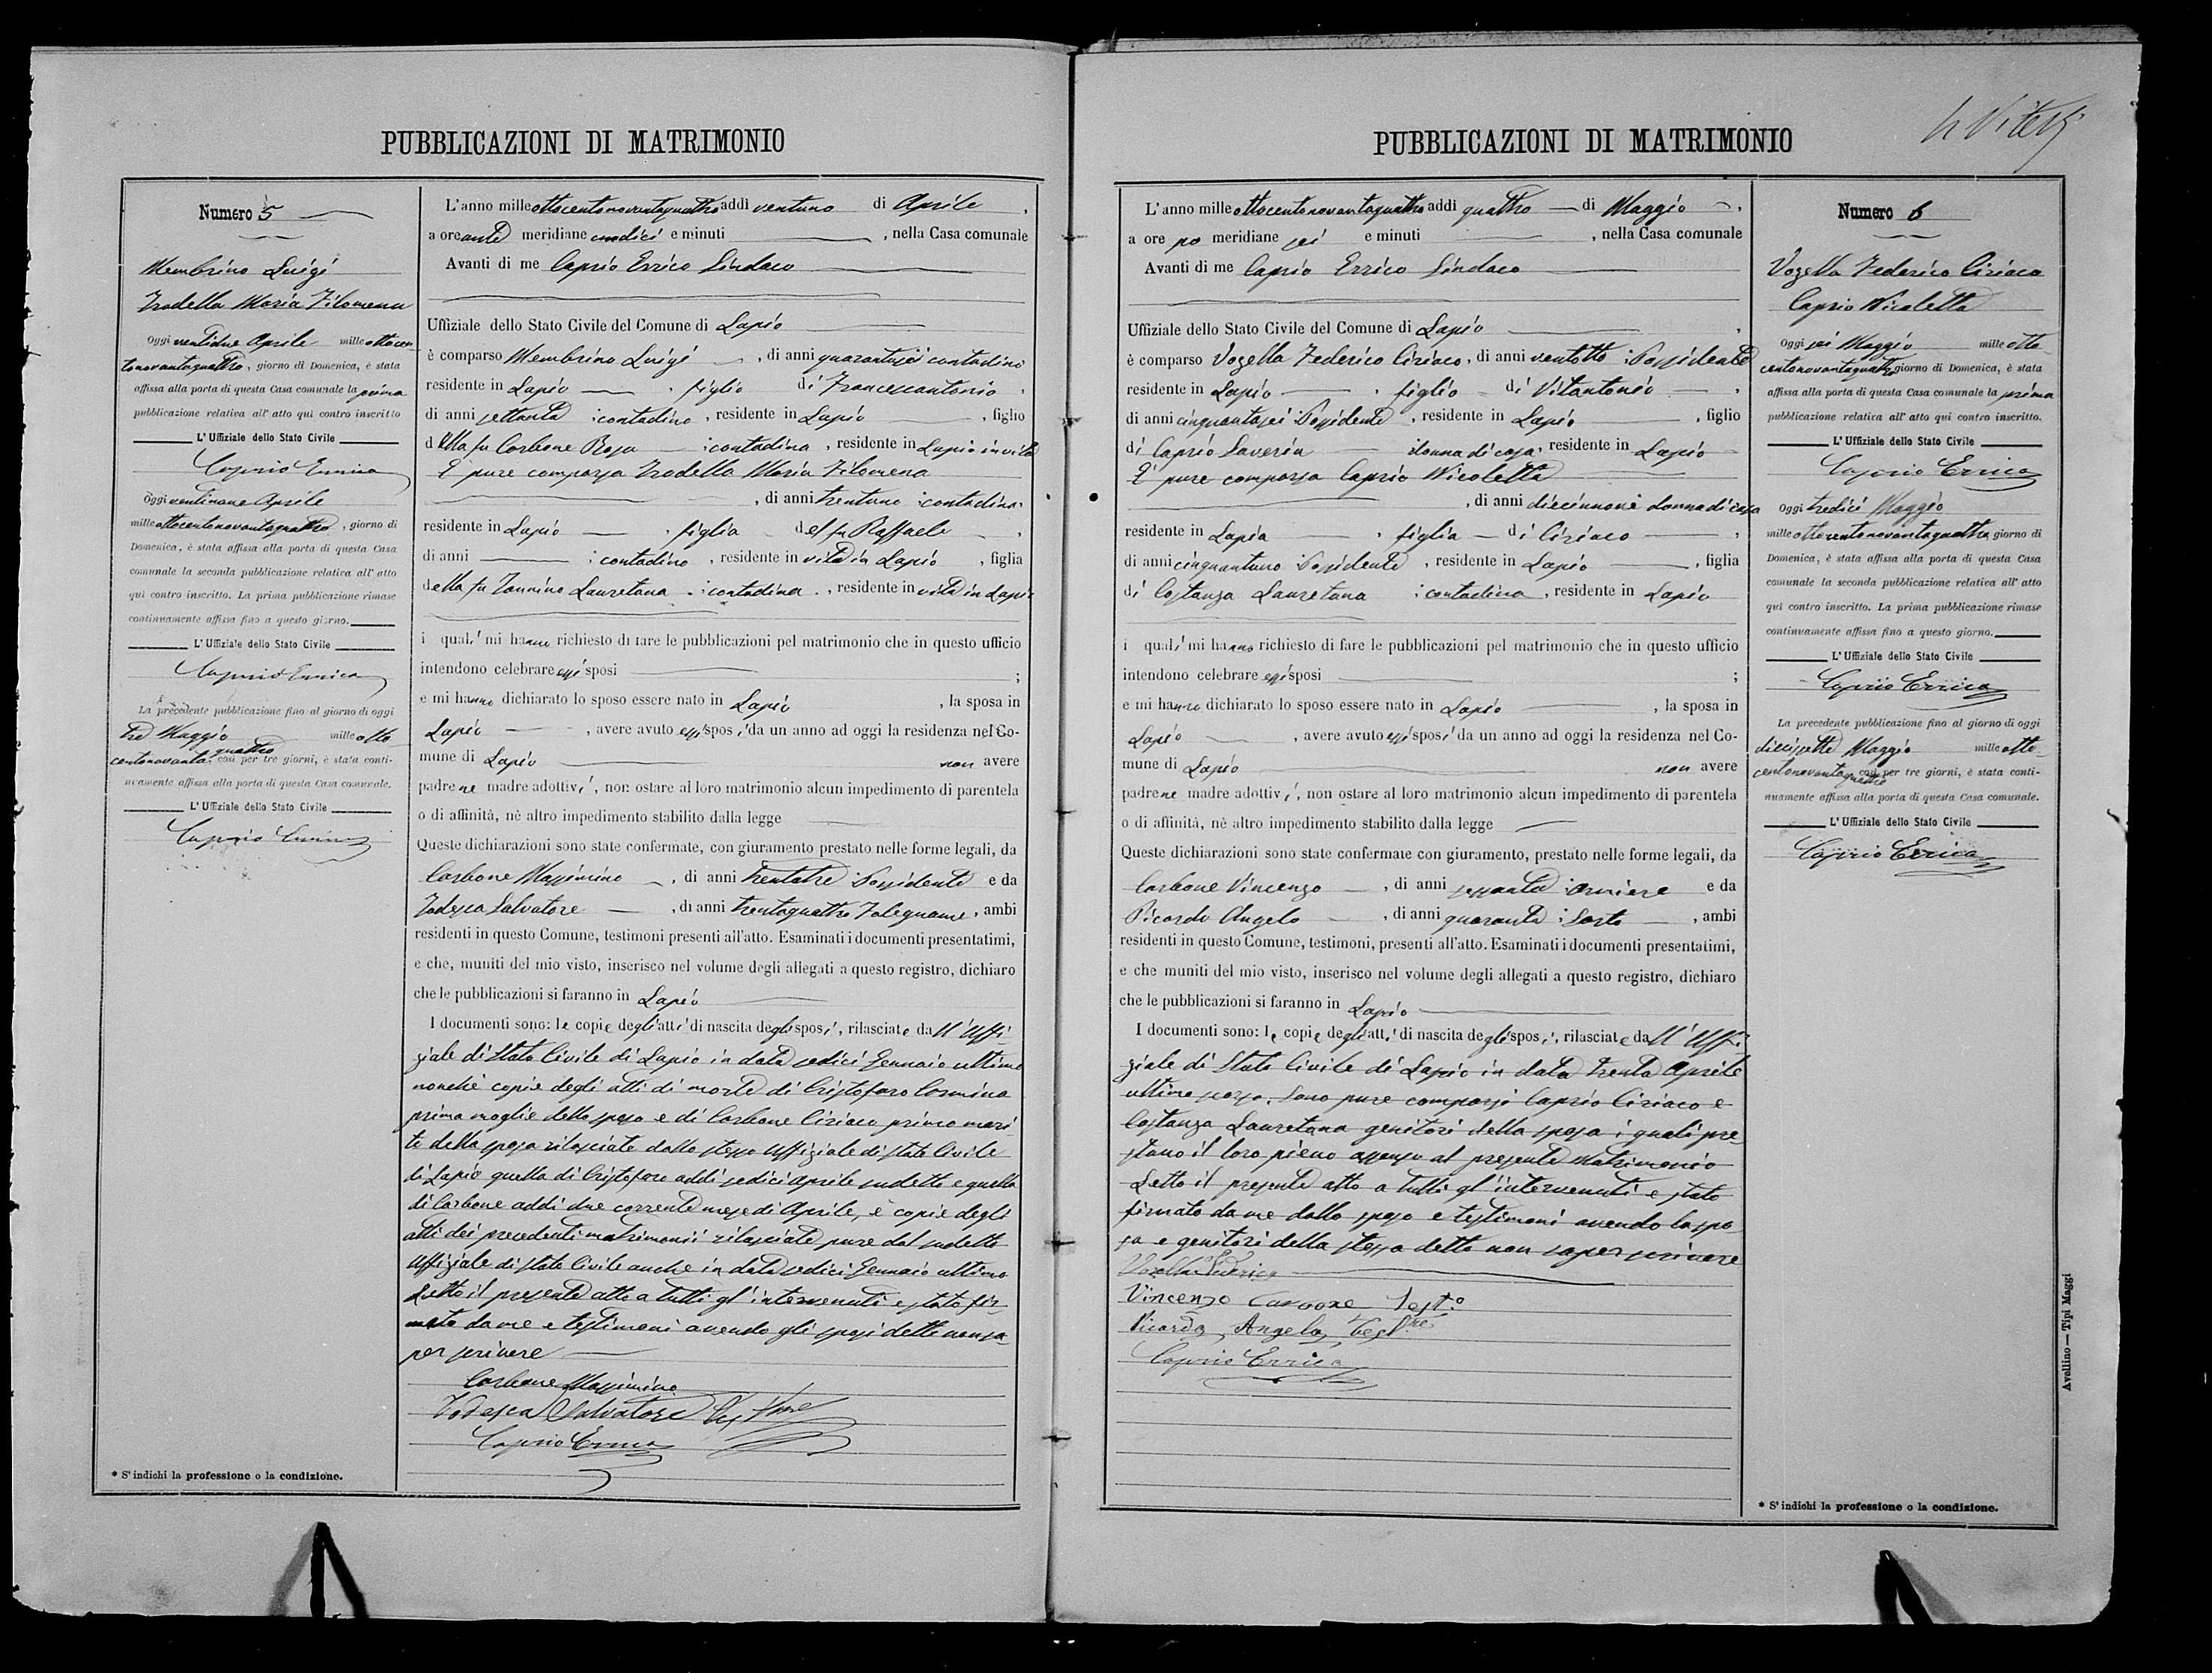 PUBBLICAZIONI DI MATRIMONIO
Numero 5
Membrino Luigi
Iradella Maria Filomena
Oggi ventidue Aprile mille ottocen
tonovantaquattro, giorno di Domenica, è stata
affissa alla porta di questa Casa comunale la prima
pubblicazione relativa all'atto qui contro inscritto
L'Uffiziale dello Stato Civile
Caprio Errico
Oggi ventinove Aprile
mille ottocentonovantaquattro, giorno di
Domenica, è stata affissa alla porta di questa Casa
comunale la seconda pubblicazione relativa all'atto
qui contro inscritto. La prima pubblicazione rimase
continuamente affissa fino a questo giorno.
L'Uffiziale dello Stato Civile
Caprio Errico
La precedente pubblicazione fino al giorno di oggi
tre Maggio mille otto
centonovanta quattro così per tre giorni, è stata conti-
nuamente affissa alla porta di questa Casa comunale.
L'Uffiziale dello Stato Civile
Caprio Errico
* S'indichi la professione o la condizione.
L'anno mille ottocentonovantaquattro addì ventuno di Aprile,
a ore ante meridiane undici e minuti , nella Casa comunale
Avanti di me Caprio Errico Sindaco
Uffiziale dello Stato Civile del Comune di Lapio
è comparso Membrino Luigi, di anni quarantasei contadino
residente in Lapio, figlio di Francescantonio,
di anni settanta contadino, residente in Lapio, figlio
della fu Carbone Rosa contadina, residente in Lapio in vita
È pure comparsa Iradella Maria Filomena
, di anni trentuno contadina,
residente in Lapio, figlia del fu Raffaele,
di anni contadino, residente in vita in Lapio, figlia
della fu Iannino Lauretana contadina, residente in vita in Lapio
i quali mi hanno richiesto di fare le pubblicazioni pel matrimonio che in questo ufficio
intendono celebrare essi sposi ;
e mi hanno dichiarato lo sposo essere nato in Lapio, la sposa in
Lapio, avere avuto essi sposi da un anno ad oggi la residenza nel Co-
mune di Lapio non avere
padre ne madre adottivi, non ostare al loro matrimonio alcun impedimento di parentela
o di affinità, nè altro impedimento stabilito dalla legge
Queste dichiarazioni sono state confermate, con giuramento prestato nelle forme legali, da
Carbone Massimino, di anni trentatre Possidente e da
Todesca Salvatore, di anni trentaquattro Falegname, ambi
residenti in questo Comune, testimoni presenti all'atto. Esaminati i documenti presentatimi,
e che, muniti del mio visto, inserisco nel volume degli allegati a questo registro, dichiaro
che le pubblicazioni si faranno in Lapio
I documenti sono: le copie degli atti di nascita degli sposi, rilasciate dall'Uffi-
ziale di Stato Civile di Lapio in data sedici Gennaio ultimo
nonché copie degli atti di morte di Cristofaro Carmina
prima moglie dello sposo e di Carbone Ciriaco primo mari-
to della sposa rilasciate dallo stesso Uffiziale di Stato Civile
di Lapio quella di Cristofaro addì sedici aprile sudetto e quella
di Carbone addì due corrente mese di Aprile, è copie degli
atti dei precedenti matrimonii rilasciate pure dal sudetto
Uffiziale di Stato Civile anche in data sedici Gennaio ultimo
Letto il presente atto a tutti gl'intervenuti e stato fir-
mato da me e testimoni avendo gli sposi detto non sa-
per scrivere
Carbone Massimino
Todesca Salvatore Testimone
Caprio Errico
PUBBLICAZIONI DI MATRIMONIO
L'anno mille ottocentonovantaquattro addì quattro di Maggio,
a ore po meridiane sei e minuti , nella Casa comunale
Avanti di me Caprio Errico Sindaco
Uffiziale dello Stato Civile del Comune di Lapio,
è comparso Vozella Federico Ciriaco, di anni ventotto Possidente
residente in Lapio, figlio di Vitantonio,
di anni cinquantasei Possidente, residente in Lapio, figlio
di Caprio Saveria donna di casa, residente in Lapio
È pure comparsa Caprio Nicoletta
, di anni diecinnove donna di casa
residente in Lapio, figlia di Ciriaco,
di anni cinquantuno Possidente, residente in Lapio, figlia
di Costanza Lauretana contadina, residente in Lapio
i quali mi hanno richiesto di fare le pubblicazioni pel matrimonio che in questo ufficio
intendono celebrare essi sposi ;
e mi hanno dichiarato lo sposo essere nato in Lapio, la sposa in
Lapio, avere avuto essi sposi da un anno ad oggi la residenza nel Co-
mune di Lapio non avere
padre ne madre adottivi, non ostare al loro matrimonio alcun impedimento di parentela
o di affinità, nè altro impedimento stabilito dalla legge
Queste dichiarazioni sono state confermate con giuramento, prestato nelle forme legali, da
Carbone Vincenzo, di anni sessanta Usciere e da
Picardo Angelo, di anni quaranta Sarto, ambi
residenti in questo Comune, testimoni, presenti all'atto. Esaminati i documenti presentatimi,
e che muniti del mio visto, inserisco nel volume degli allegati a questo registro, dichiaro
che le pubblicazioni si faranno in Lapio
I documenti sono: le copie degli atti di nascita degli sposi, rilasciate dall'Uffi-
ziale di Stato Civile di Lapio in data trenta Aprile
ultimo scorso. Sono pure comparsi Caprio Ciriaco e
Costanza Lauretana genitori della sposa i quali pre-
stano il loro pieno assenso al presente matrimonio
Letto il presente atto a tutti gl'intervenuti e stato
firmato da me dallo sposo e testimoni avendo la spo-
sa e genitori della stessa detto non saper scrivere
Vozella Federico
Vincenzo Carbone Testo
Picardo Angelo Testne
Caprio Errico
Numero 6
Vozella Federico Ciriaco
Caprio Nicoletta
Oggi sei Maggio mille otto
centonovantaquattro giorno di Domenica, è stata
affissa alla porta di questa Casa comunale la prima
pubblicazione relativa all'atto qui contro inscritto.
L'Uffiziale dello Stato Civile
Caprio Errico
Oggi tredici Maggio
mille ottocentonovantaquattro giorno di
Domenica, è stata affissa alla porta di questa Casa
comunale la seconda pubblicazione relativa all'atto
qui contro inscritto. La prima pubblicazione rimase
continuamente affissa fino a questo giorno.
L'Uffiziale dello Stato Civile
Caprio Errico
La precedente pubblicazione fino al giorno di oggi
diecissette Maggio mille otto-
centonovantaquattro così per tre giorni, è stata conti-
nuamente affissa alla porta di questa Casa comunale.
L'Uffiziale dello Stato Civile
Caprio Errico
* S'indichi la professione o la condizione.
Avellino — Tipi Maggi